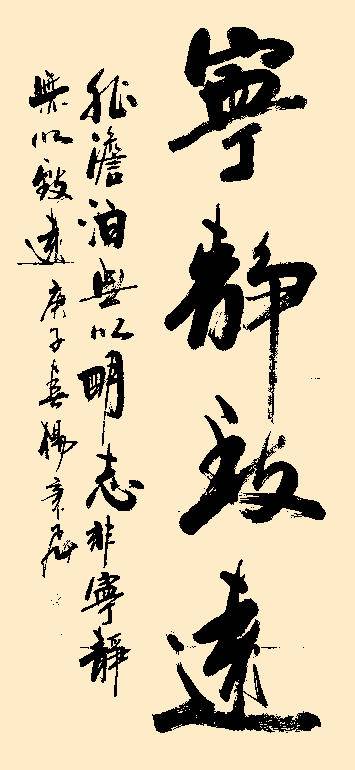 寧靜致遠
非澹泊無以明志非寧靜
無以致遠 庚子春楊